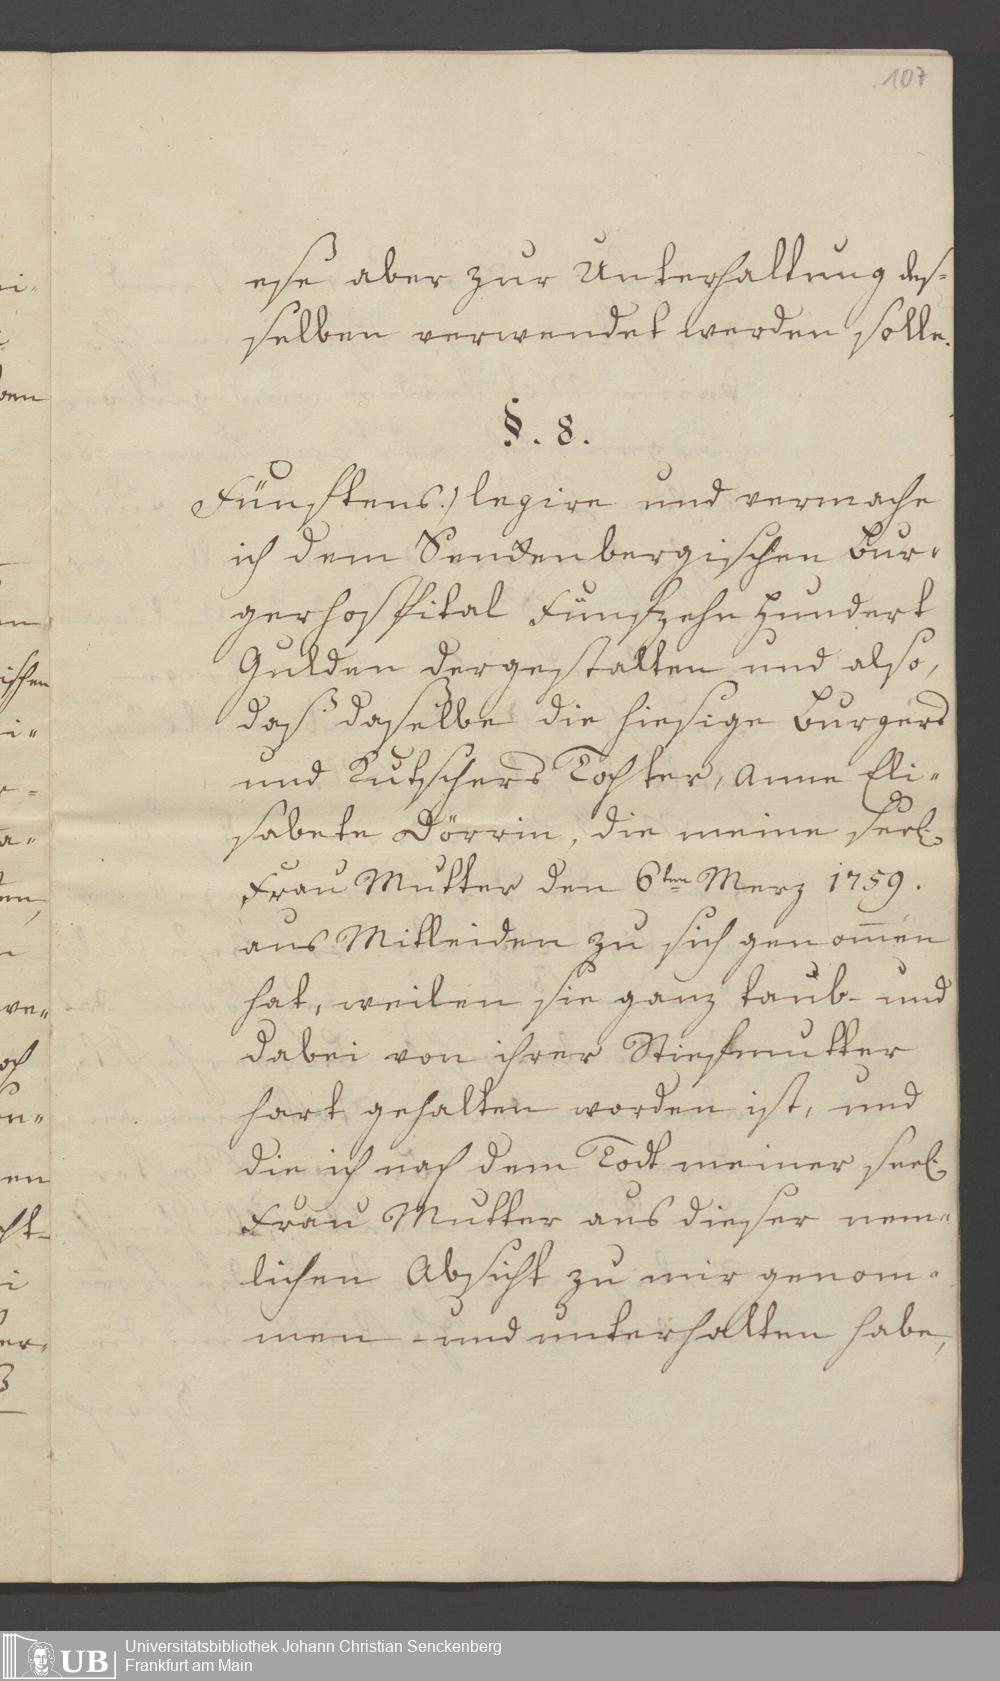 107
ese aber zur Unterhaltung des-
selben verwendet werden solle.
§. 8.
Fünftens.) legire und vermache
ich dem Senckenbergischen Bur-
gerhospital Fünfzehn Hundert
Gulden dergestalten und also,
daß daßelbe die hiesige Burgers
und Kutschers Tochter, Anne Eli-
sabete Dörrin, die meine seel.
Frau Mutter den 6ten Merz 1759.
aus Mitleiden zu sich genom̅en
hat, weilen sie ganz taub- und
dabei von ihrer Stiefmutter
hart gehalten worden ist, und
die ich nach dem Todt meiner seel.
Frau Mutter aus dieser nem-
lichen Absicht zu mir genom-
men - und unterhalten habe,
UB
Universitätsbibliothek Johann Christian Senckenberg
Frankfurt am Main